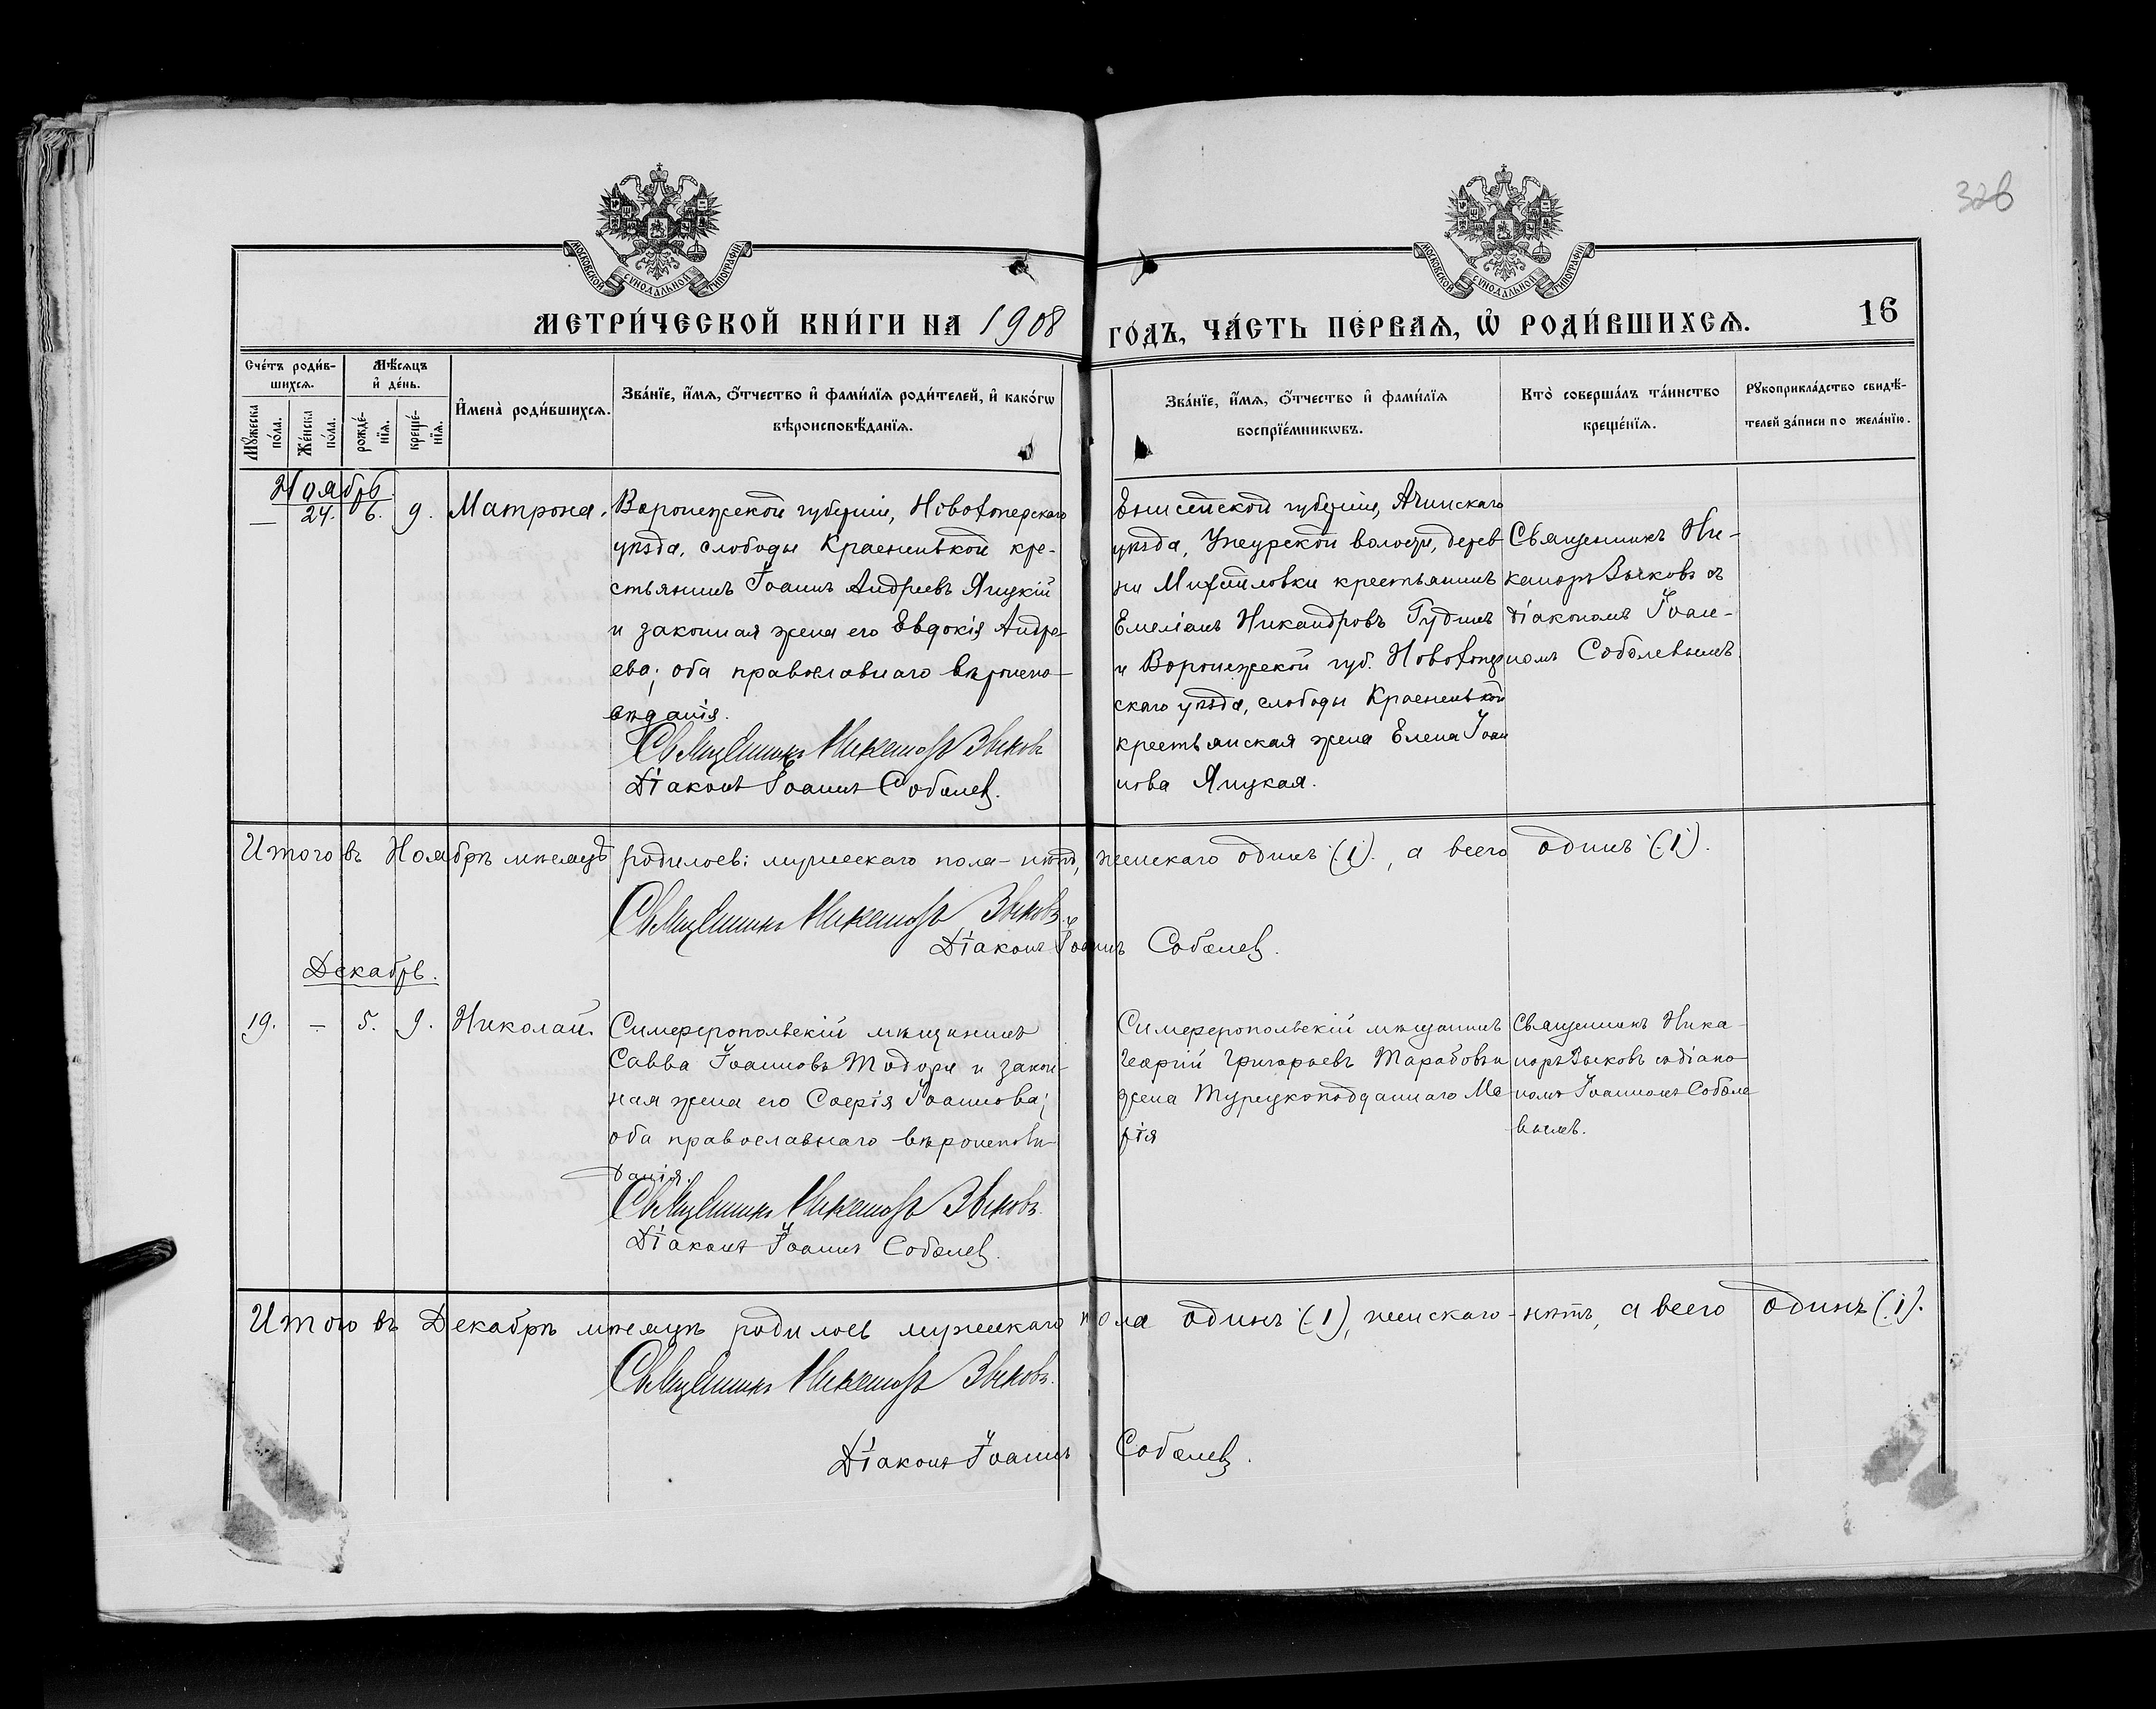 326
МОСКОВСКОЙ СѴНОДАЛЬНОЙ ТИПОГРАФІИ
МОСКОВСКОЙ СѴНОДАЛЬНОЙ ТИПОГРАФІИ
МЕТРИ́ЧЕСКОЙ КНИ́ГИ НА 1908 ГО́ДЪ, ЧА́СТЬ ПЕ́РВАѦ, Ѡ РОДИ́ВШИХСѦ. 16
Сче́тъ роди́в-
шихсѧ.
Мѣ́сѧцъ
и҆ де́нь.
Мꙋ́жеска
по́ла.
Же́нска
по́ла.
рожде́-
нїѧ.
креще́-
нїѧ.
И҆мена̀ роди́вшихсѧ.
Зва́нїе, и҆́мѧ, ѻ҆́тчество и҆ фами́лїѧ роди́телей, и҆ како́гѡ
вѣроисповѣ́данїѧ.
Зва́нїе, и҆́мѧ, ѻ҆́тчество и҆ фами́лїѧ
воспрїе́мникѡвъ.
Кто̀ соверша́лъ та́инство
креще́нїѧ.
Рꙋкоприкла́дство свидѣ́-
телей за́писи по жела́нїю.
Ноябрь
— 24. 6. 9. Матрона.
Воронежской губерніи, Новохоперскаго
уѣзда, слободы Красненькой кре-
стьянинъ Іоаннъ Андреевъ Яицкій
и законная жена его Евдокія Андре-
ева; оба православнаго вѣроиспо-
вѣданія.
Священникъ Никаноръ Зыковъ
Діаконъ Іоаннъ Соболевъ.
Енисейской губерніи, Ачинскаго
уѣзда, волости, дерев
ни Михайловки крестьянинъ
Емеліанъ Никандровъ Гудинъ
и Воронежской губ. Новохопер
скаго уѣзда, слободы Красненькой
крестьянская жена Елена Іоан
нова Яицкая.
Священникъ Ни-
каноръ Зыковъ съ
діакономъ Іоан-
номъ Соболевымъ.
Итого въ Ноябрѣ мѣсяцѣ родилось: мужескаго пола - нѣтъ, женскаго одинъ (1)., а всего одинъ (1).
Священникъ Никаноръ Зыковъ.
Діаконъ Іоаннъ Соболевъ.
Декабрь.
19. — 5. 9. Николай.
Симферопольскій мѣщанинъ
Савва Іоанновъ Тодоры и закон-
ная жена его Софія Іоаннова;
оба православнаго вѣроисповѣ-
данія.
Священникъ Никаноръ Зыковъ.
Діаконъ Іоаннъ Соболевъ.
Симферопольскій мѣщанинъ
Георгій Григорьевъ Тарабовъ и
жена Турецкоподданнаго Ма
рія
Священникъ Ника-
норъ Зыковъ съ діако
номъ Іоанномъ Соболе
вымъ.
Итого въ Декабрѣ мѣсяцѣ родилось мужескаго пола одинъ (1), женскаго - нѣтъ, а всего одинъ (1).
Священникъ Никаноръ Зыковъ.
Діаконъ Іоаннъ Соболевъ.